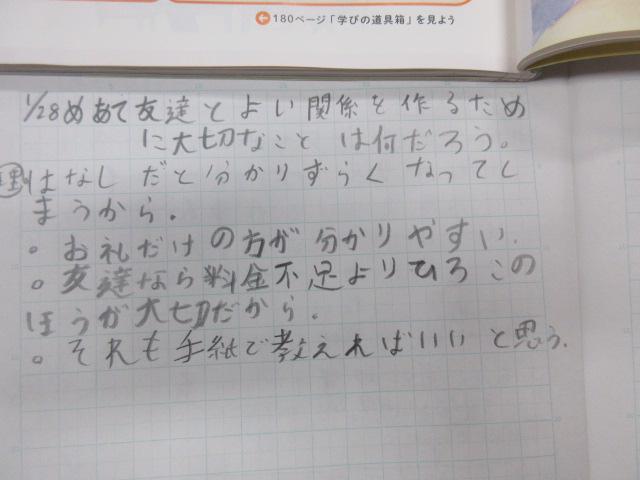 180ページ「学びの道具箱」を見よう
1/28めあて友達とよい関係を作るため
に大切なことは何だろう。
理はなしだと分かりずらくなってし
まうから。
。お礼だけの方が分かりやすい.
。友達なら料金不足よりひろこの
ほうが大切だから.
。それも手紙で教えればいいと思う.